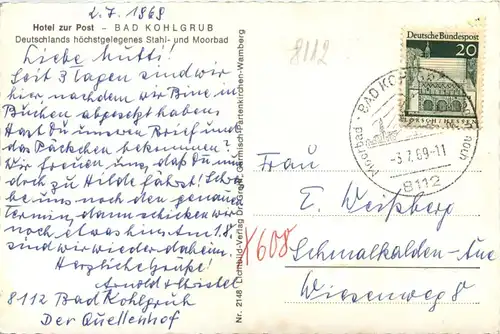 2.7.1969
Hotel zur Post – BAD KOHLGRUB
Deutschlands höchstgelegenes Stahl- und Moorbad
Liebe Mutti!
Seit 3 Tagen sind wir
hier, nachdem wir Bine in
Buchen abgesetzt haben.
Hast du unseren Brief und
das Päckchen bekommen?
Wir freuen uns, daß Du nun
doch zu Hilde fährst! Schreibe
bei uns noch den genauen
Termin, dann schicken wir
noch etwas hin. Am 1.8.
sind wir wieder daheim.
Herzliche Grüße!
Arnold + Christel
8112 Bad Kohlgrub
Der Quellenhof
Nr. 2148 Lichtbild-Verlag Dr. Groß, Garmisch-Partenkirchen-Wamberg
8112
Deutsche Bundespost
20
LORSCH / HESSEN
BAD KOHLGRUB
Moorbad
-3.7.69-11
8112
Frau
E. Weißberg
X608
Schmalkalden-Aue
Wiesenweg 8